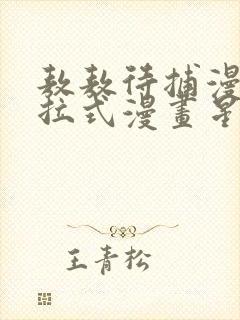 敖敖待捕漫
拉式漫畫星
王青松